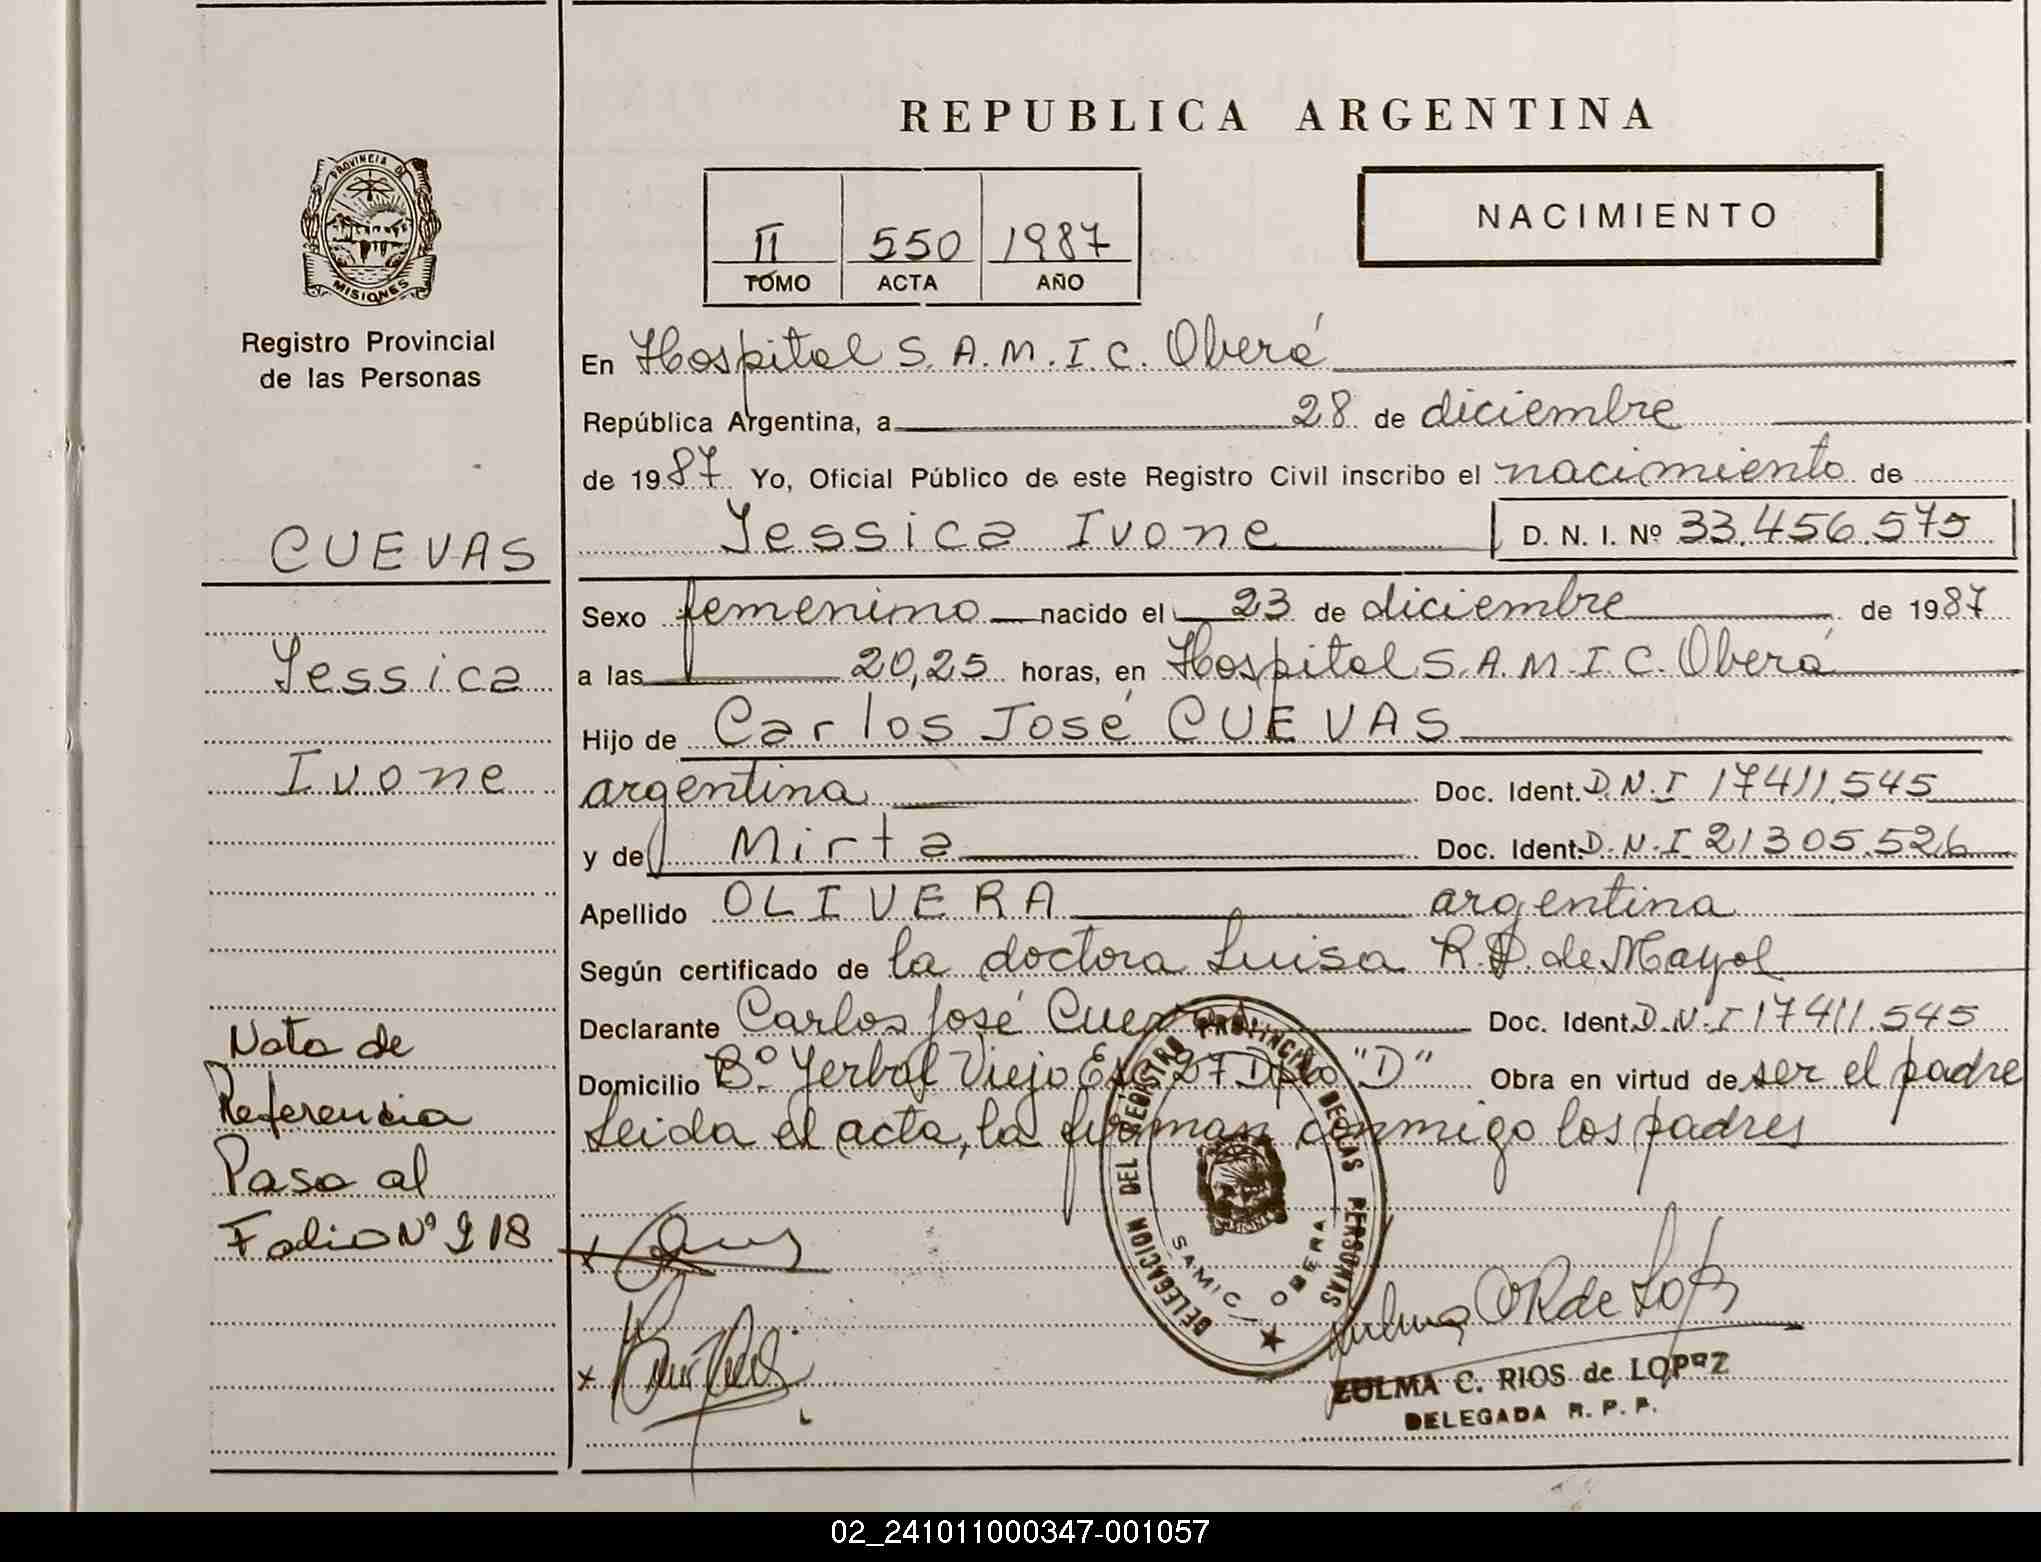 REPUBLICA ARGENTINA
PROVINCIA DE
MISIONES
Registro Provincial
de las Personas
II 550 1987
TOMO ACTA AÑO
NACIMIENTO
En Hospital S.A.M.I.C. Oberá
República Argentina, a 28 de diciembre
de 1987 Yo, Oficial Público de este Registro Civil inscribo el nacimiento de
Yessica Ivone D. N. I. Nº 33.456.575
Sexo femenino nacido el 23 de diciembre de 1987
a las 20,25 horas, en Hospital S.A.M.I.C. Oberá
Hijo de Carlos José CUEVAS
argentina Doc. Ident. D.N.I 17411.545
y de Mirta Doc. Ident. D.N.I 21305.526
Apellido OLIVERA argentina
Según certificado de la doctora Luisa R.D. de Mayol
Declarante Carlos José Cuevas Doc. Ident. D.N.I 17411.545
Domicilio Bº Yerbal Viejo Esc 27 Dpto "D" Obra en virtud de ser el padre
Leida el acta, la firman conmigo los padres
CUEVAS
Yessica
Ivone
Nota de
Referencia
Pasa al
Folio Nº 218
DELEGACION DEL REGISTRO PROVINCIAL DE LAS PERSONAS
SAMIC OBERA
ZULMA C. RIOS de LOPEZ
DELEGADA R. P. P.
02_241011000347-001057